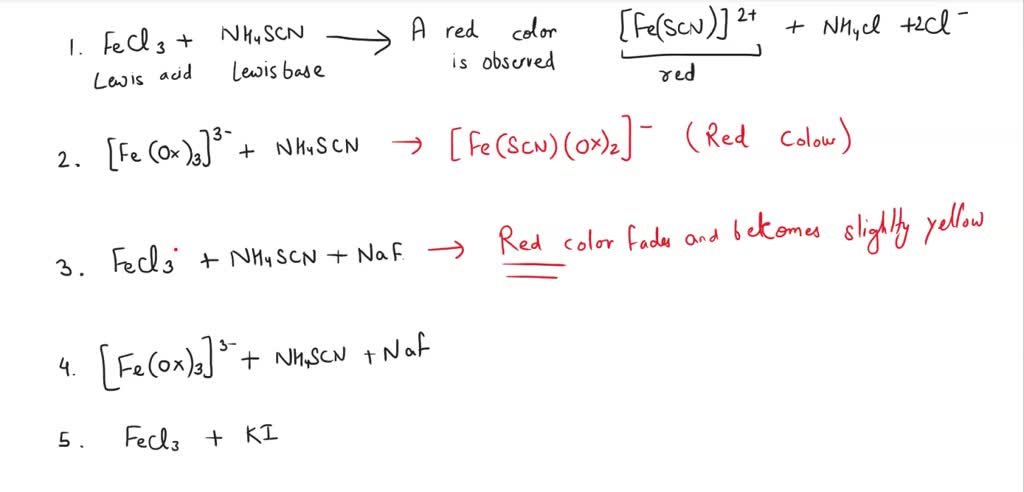 1. FeCl₃ + NH₄SCN ⟶ A red color [Fe(SCN)]²⁺ + NH₄Cl +2Cl⁻
Lewis acid Lewis base is observed red
2. [Fe(Ox)₃]³⁻ + NH₄SCN → [Fe(SCN)(Ox)₂]⁻ (Red Colour)
3. FeCl₃ + NH₄SCN + NaF → Red color fades and becomes slightly yellow
4. [Fe(Ox)₃]³⁻ + NH₄SCN + NaF
5. FeCl₃ + KI